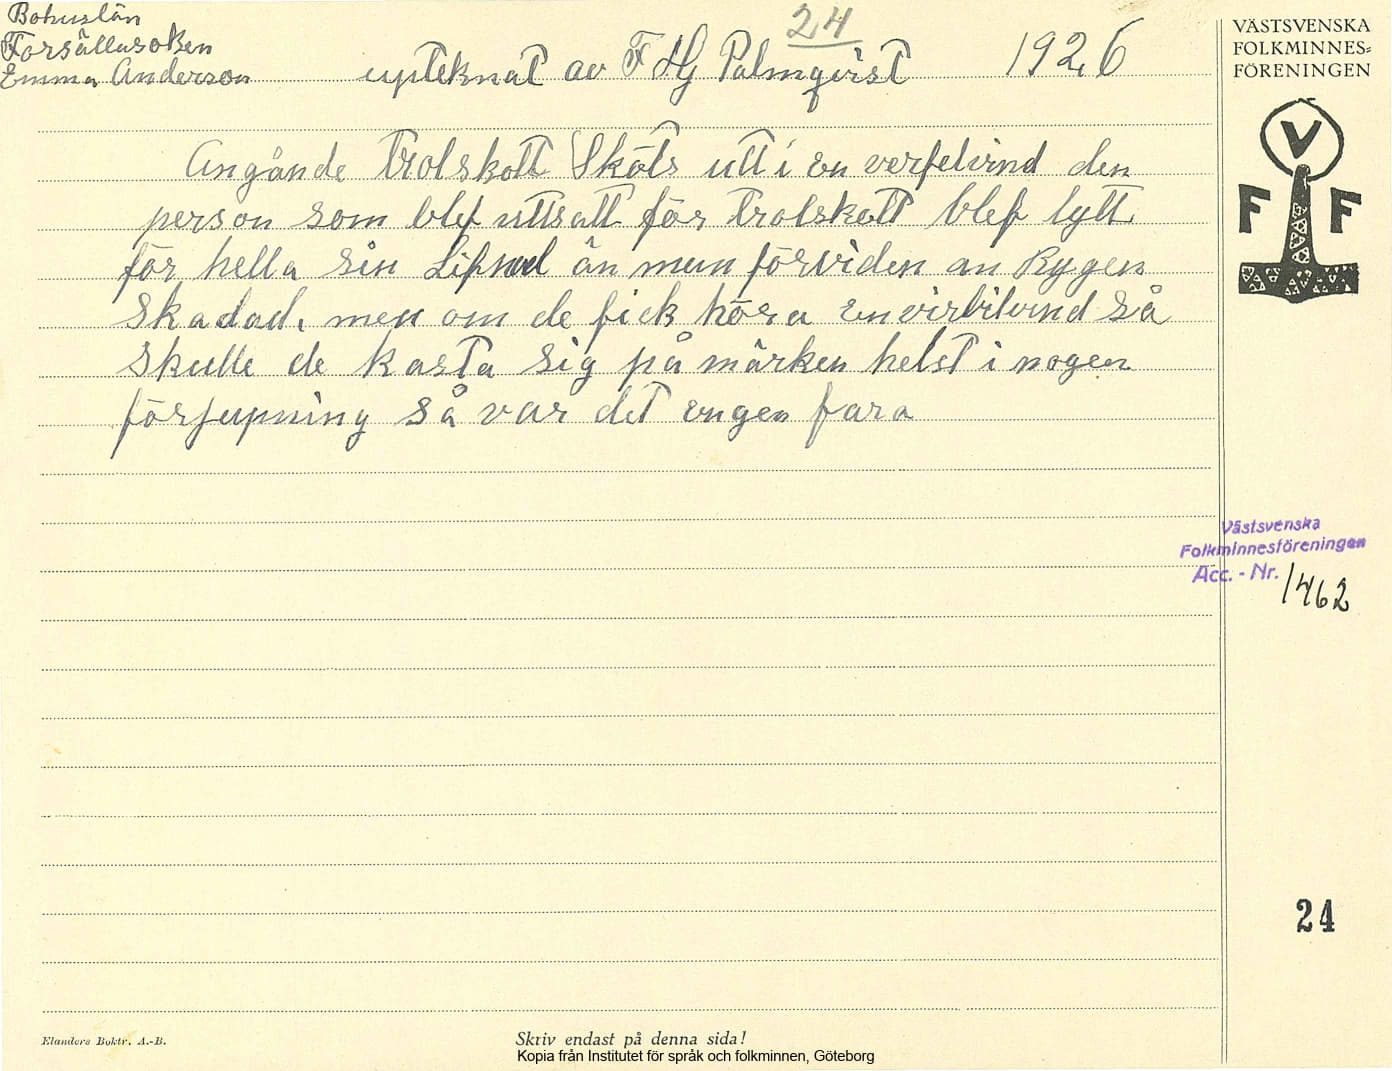 24
Bohuslän
Forsällasoken
Emma Anderson
upteknat av F Hj Palmqvist 1926
Angånde Trolskott Skôts utt i en verfelvind den
person som blef uttsatt för trolskott blef lytt
för hella sin Lifned än mun förviden an Rygen
Skadad, men om de fick höra en virbilvind så
skulle de kasta sig på märken helst i nogen
förjupning så var det engen fara
VÄSTSVENSKA
FOLKMINNES=
FÖRENINGEN
V
F F
Västsvenska
Folkminnesföreningen
Acc. - Nr. 1462
24
Elanders Boktr. A.-B.
Skriv endast på denna sida!
Kopia från Institutet för språk och folkminnen, Göteborg